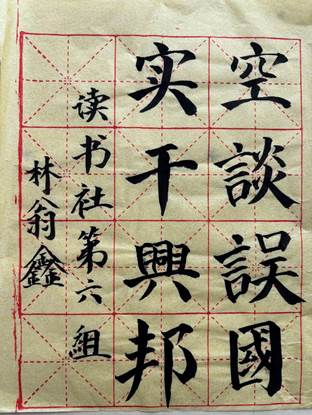 空談誤國
实干興邦
读书社第六組
林翁鑫